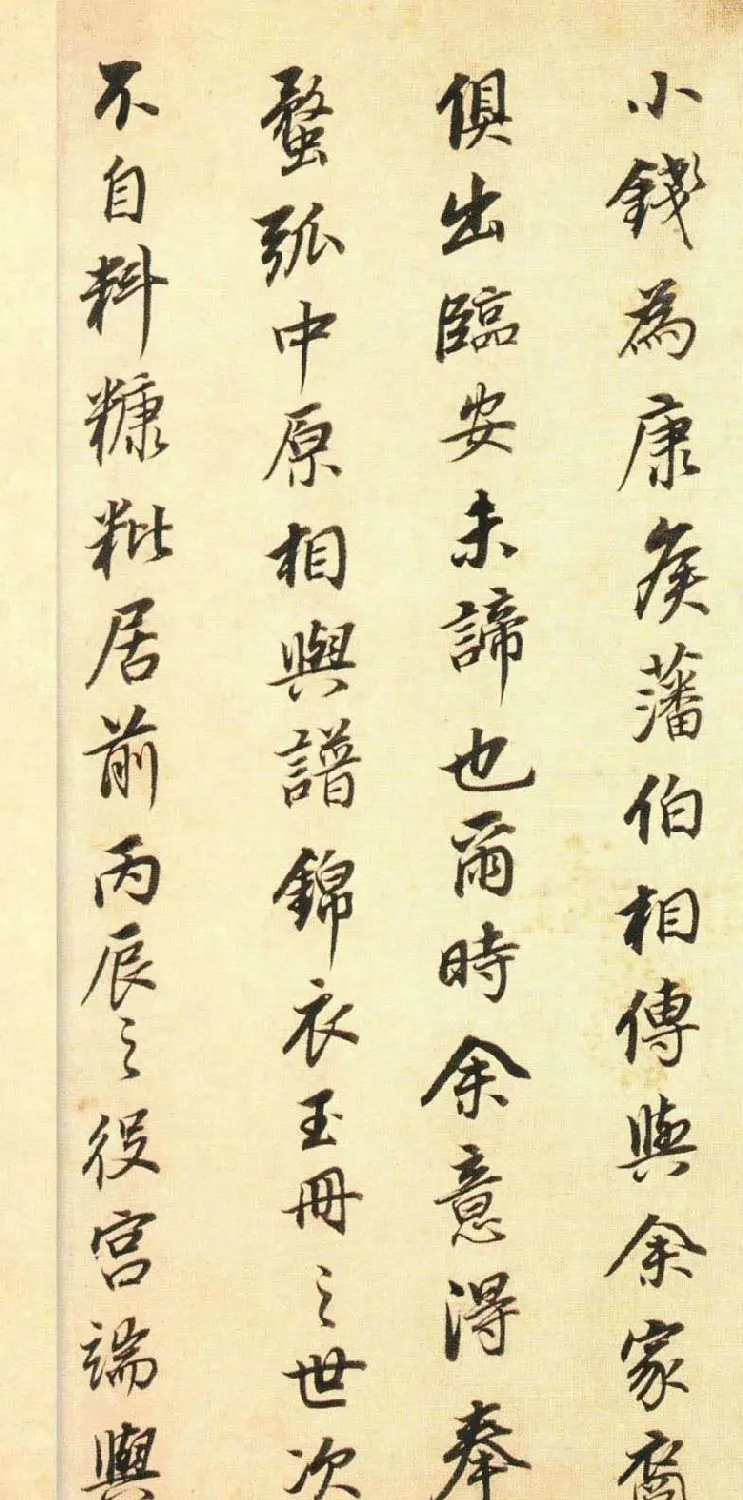 小錢為康侯藩伯相傳與余家裔
俱出臨安未諦也爾時余意得奉
蝥弧中原相與譜錦衣玉冊之世次
不自料糠粃居前丙辰之役宮端與